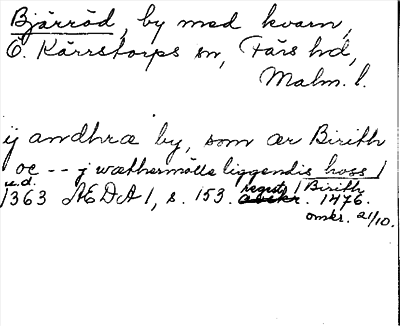 Bjärröd, by med kvarn,
Ö. Kärrstorps sn, Färs hd,
Malm. l.
ij andhra by, som ær Birith
oc -- j wæthermölle liggendis hoss /
u.d. regest / Birith
1363 ÆDA 1, s. 153. avskr. 1476.
omkr. 21/10.